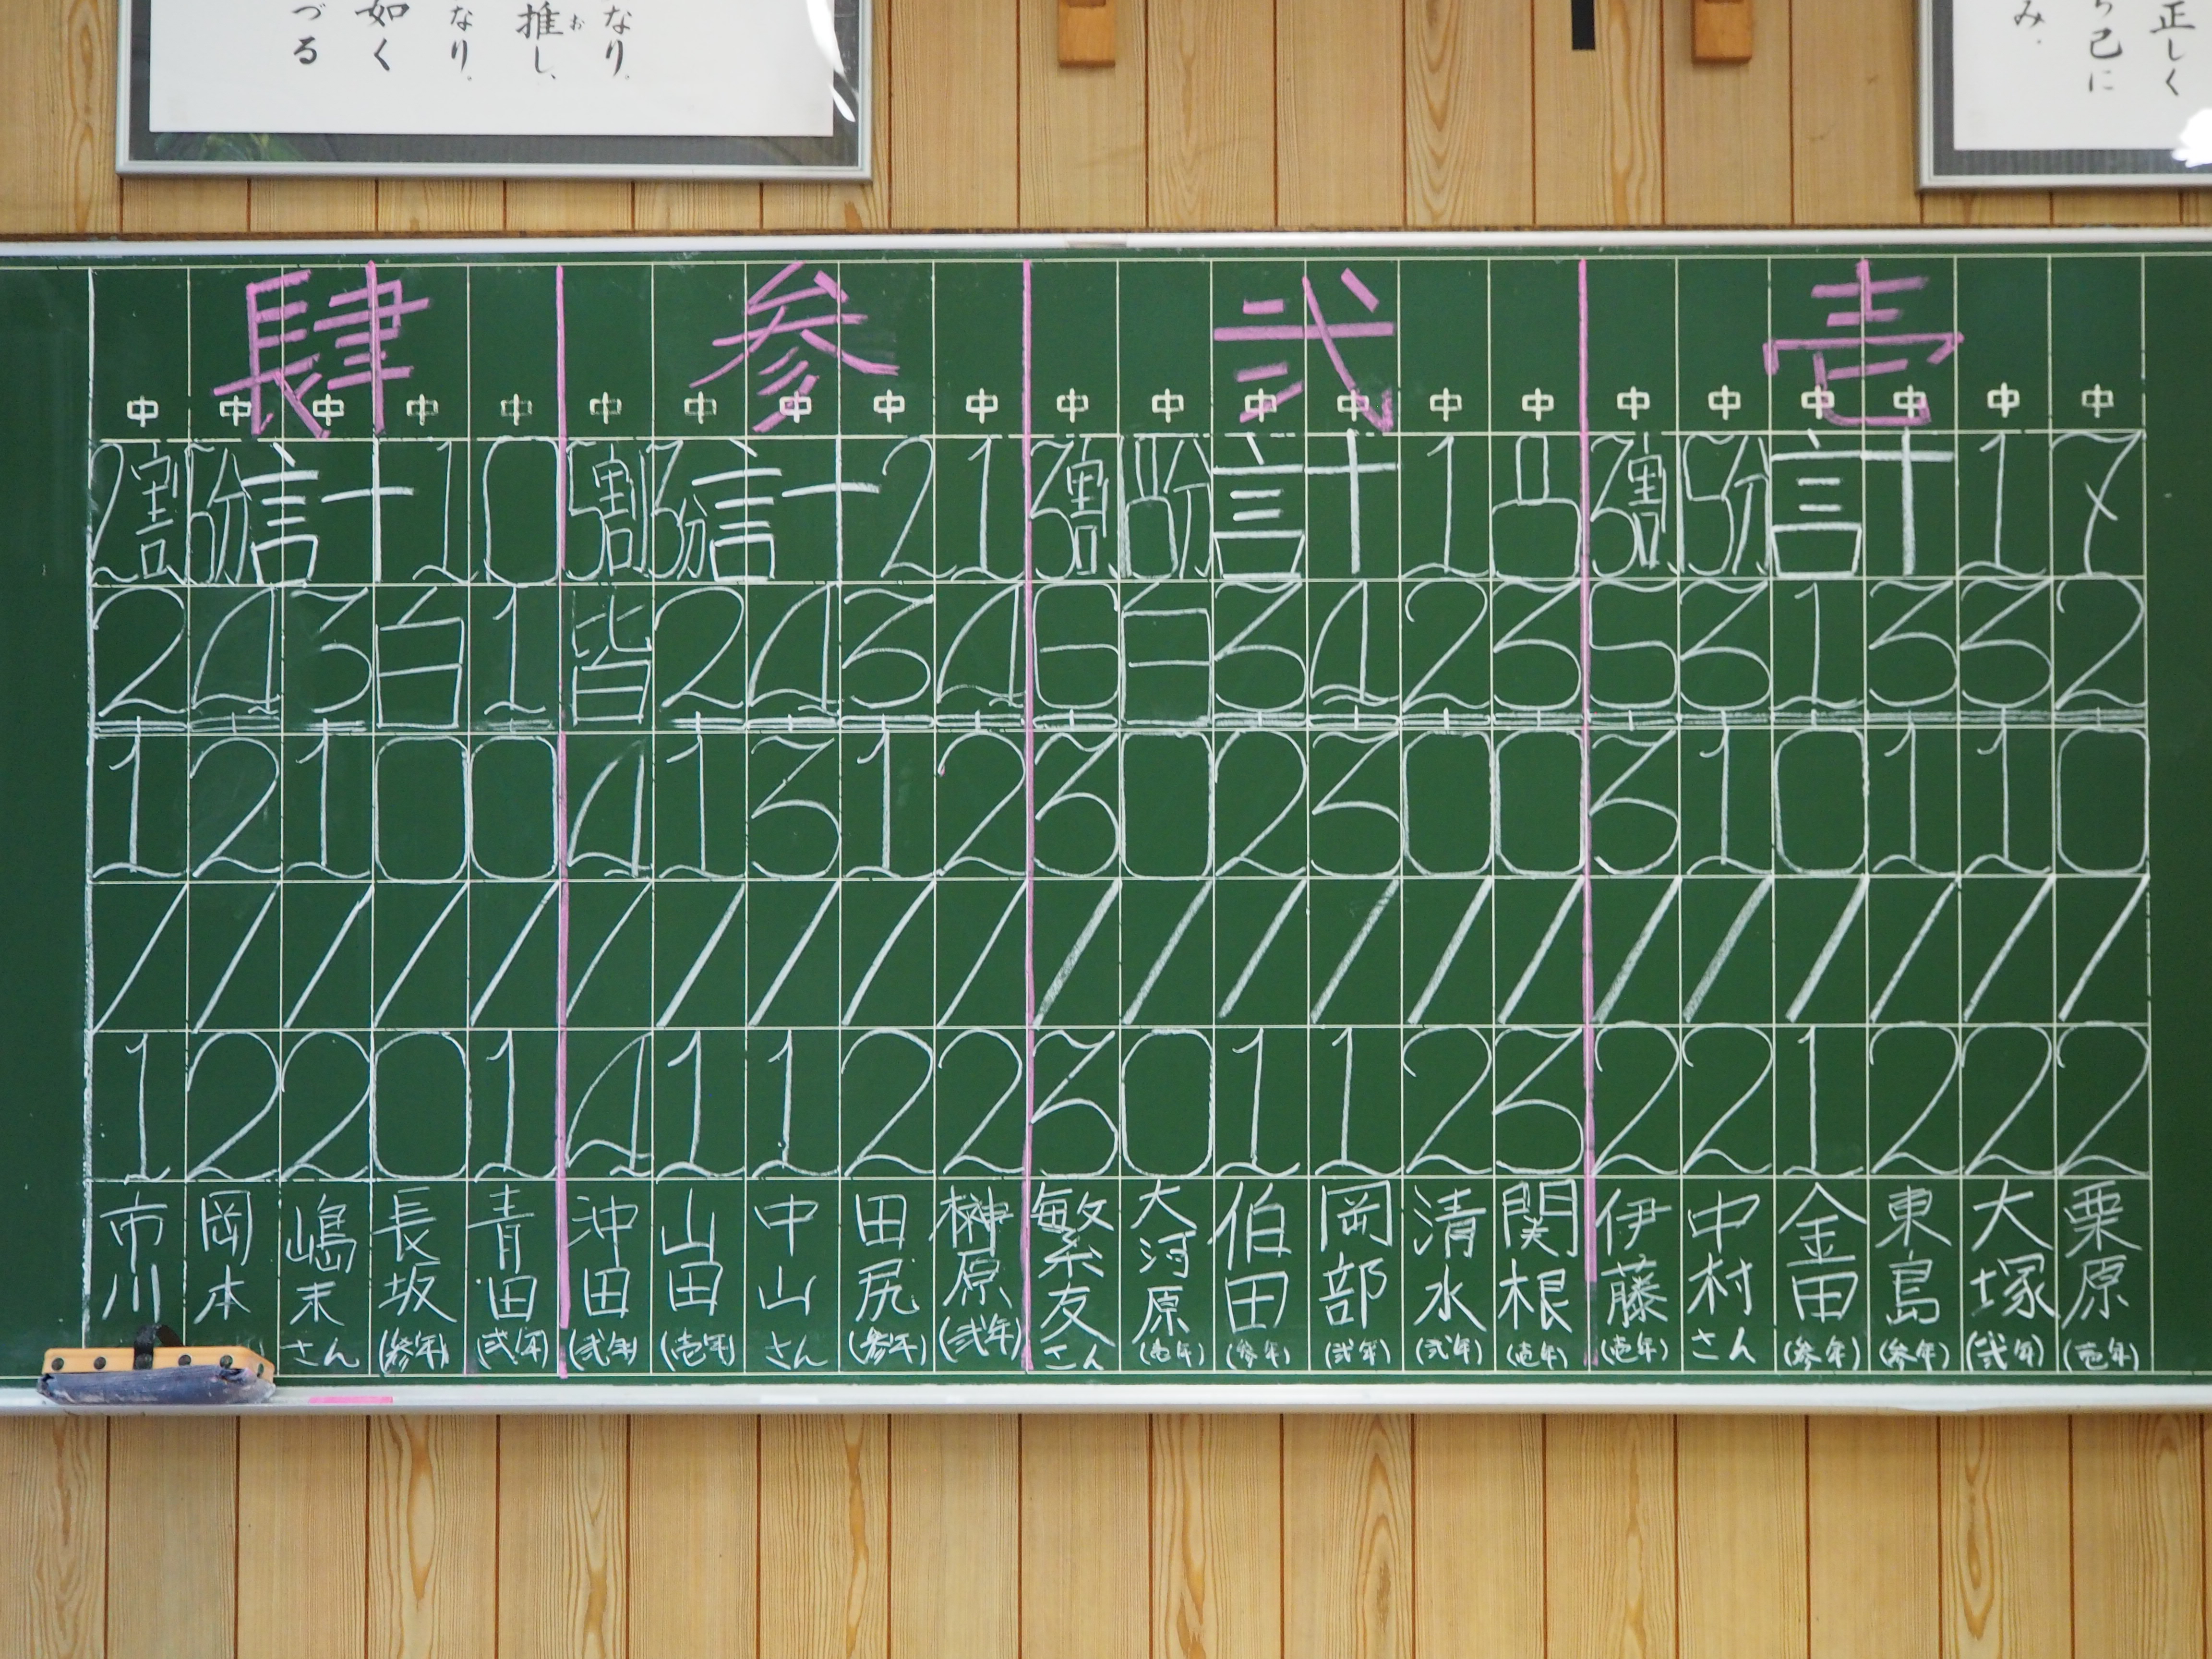 なり。
推し、
なり。
如く
づる
正しく
己に
み。
壱 弐 参 肆
中 中 中 中 中 中 中 中 中 中 中 中 中 中 中 中 中 中 中 中 中 中
2割6分 計十10
5割3分 計十21
3割 計十18
3割5分 計十17
2 4 3 白 1 皆 2 4 3 4 6 白 3 4 2 3 5 3 1 3 3 2
1 2 1 0 0 4 1 3 1 2 3 0 2 3 0 0 3 1 0 1 1 0
/ / / / / / / / / / / / / / / / / / / / / /
1 2 2 0 1 4 1 1 2 2 3 0 1 1 2 3 2 2 1 2 2 2
栗原(壱年)
大塚(弐年)
東島(参年)
金田(参年)
中村さん
伊藤(壱年)
関根(壱年)
清水(弐年)
岡部(弐年)
伯田(参年)
大河原(壱年)
繁友さん
榊原(弐年)
田尻(参年)
中山さん
山田(壱年)
沖田(弐年)
青田(弐年)
長坂(参年)
嶋末さん
岡本
市川